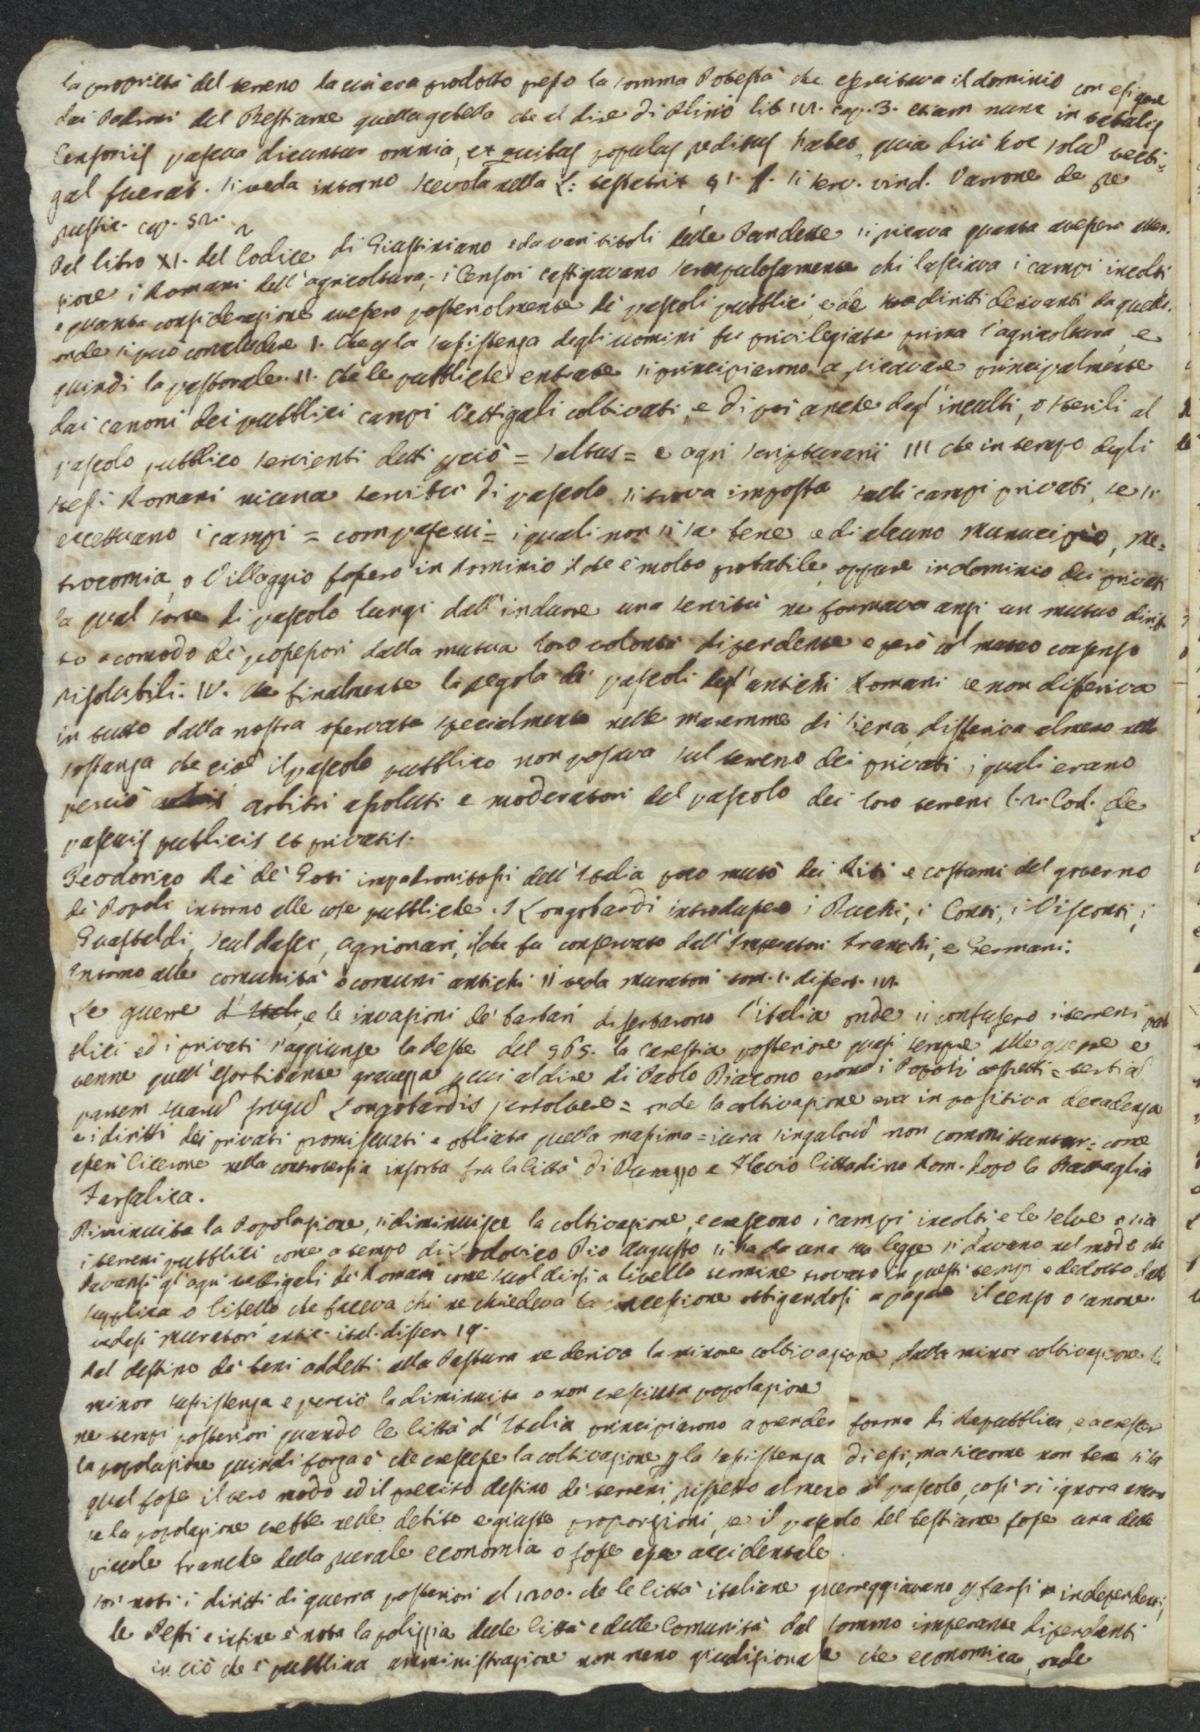 la proprietà del terreno da cui era prodotto presso la somma Potestà che esercitava il dominio con esigere
dai Padroni del Bestiame quella gabella che al dire di Plinio lib. IV. cap. 3. etiam nunc in tabulis
Censoriis pascua dicuntur omnia, ex quibus populus reditus habet, quia diu hoc solũ vecti=
gal fuerat. si veda intorno Scevola nella L: testatrix §1. ff. si serv. vind. Varrone de re
rustic. cap. 52.
Dal libro XI. del Codice di Giustiniano e da vari titoli delle Pandette si ricava quanta avessero atten-
zione i Romani dell'agricoltura; i Censori castigavano scrupolosamente chi lasciava i campi incolti
e quanta considerazione avessero posteriolmente de' pascoli pubblici, e de diritti derivanti da quelli.
onde si può concludere I. che p la sussistenza degli uomini fu privilegiata prima l'agricoltura, e
quindi la pastorale. II. che le pubbliche entrate si principiarono a ricavare principalmente
dai canoni dei pubblici campi Vettigali coltivati, e di poi anche dagl'inculti, o sterili al
pascolo pubblico servienti detti p ciò = saltus = e agri scripturarii III che in tempo degli
stessi Romani niuna servitù di pascolo si trova imposta sulli campi privati, se si
eccettuano i campi = compascui = i quali non si sa bene se di alcuno Municipio, Me=
trocomia, o Villaggio fossero in dominio il che è molto probabile, oppure in dominio dei privati
la qual sorte di pascolo lungi dall'indurre una servitù ne formava anzi un mutuo dirit=
to a comodo de' possessori dalla mutua loro volontà dipendente e però col mutuo consenso
risolubili. IV. che finalmente la regola de' pascoli degl'antichi Romani se non differiva
in tutto dalla nostra osservata specialmente nelle maremme di Siena, differiva almeno nella
sostanza che cioè il pascolo pubblico non posava sul terreno dei privati, i quali erano
perciò arbitri assoluti e moderatori del pascolo dei loro terreni l. 2. Cod. de
pascuis publicis et privatis.
Teodorico Rè de' Goti impadronitosi dell'Italia poco mutò dei Riti e costumi del governo
de' Popoli intorno alle cose pubbliche. I Longobardi introdussero i Duchi, i Conti, i Visconti, i
Guastaldi, Sculdasci, agrionari, il che fu conservato dall'Imperatori Franchi, e Germani.
Intorno alle comunità o comuni antichi si veda Muratori tom. I. dissert. IV.
Le guerre, e le invasioni de' barbari disertarono l'italia onde si confusero i terreni pub
blici ed i privati s'aggiunse la Peste del 565. la carestia posteriore quasi sempre alle guerre e
venne quell'esorbitante gravezza p cui al dire di Paolo Diacono erano i Popoli costretti = tertiã
partem suarũ frugũ Longobardis persolvere = onde la coltivazione era in positiva decadenza
e i diritti dei privati promiscuati e obliata quella massima = iura singulorũ non committantur = come
operò Cicerone nella controversia insorta fra la Città di Durazzo e Flavio Cittadino Rom. dopo la Battaglia
Farsalica.
Diminuita la Popolazione, si diminuisce la coltivazione, e crescono i campi incolti, e le selve e sia
i terreni pubblici come a tempo di Lodovico Pio Augusto si ha da una sua legge si davano nel modo che
davansi gl'agri vettigali de' Romani come suol dirsi a livello termine trovato in questi tempi e dedotto dalla
supplica o libello che faceva chi ne chiedeva la concessione obbligandosi a pagare il censo o canone.
vedasi Muratori antic. ital. disser. 19.
Dal destino de' beni addetti alla Pastura ne deriva la minore coltivazione, dalla minor coltivazione la
minor sussistenza e perciò la diminuita o non cresciuta popolazione
ne tempi posteriori quando le Città d'Italia principiarono a prender forma di Repubblica, e a crescer
la popolazione quindi forza è che crescesse la coltivazione p la sussistenza di essi, ma siccome non bene si sa
qual fosse il vero modo ed il preciso destino de' terreni, rispetto almeno al pascolo, così si ignora anco
se la popolazione crebbe nelle debite e giuste proporzioni, se il pascolo del bestiame fosse una delle
piccole branche della rurale economia o fosse essa accidentale.
son noti i diritti di guerra posteriori al 1200. che le Città italiane guerreggiavano p farsi independenti,
le Pesti e infine è nota la polizzia delle Città e delle Comunità dal sommo imperante dipendenti
in ciò che è pubblica amministrazione non meno giudizionale che economica, onde